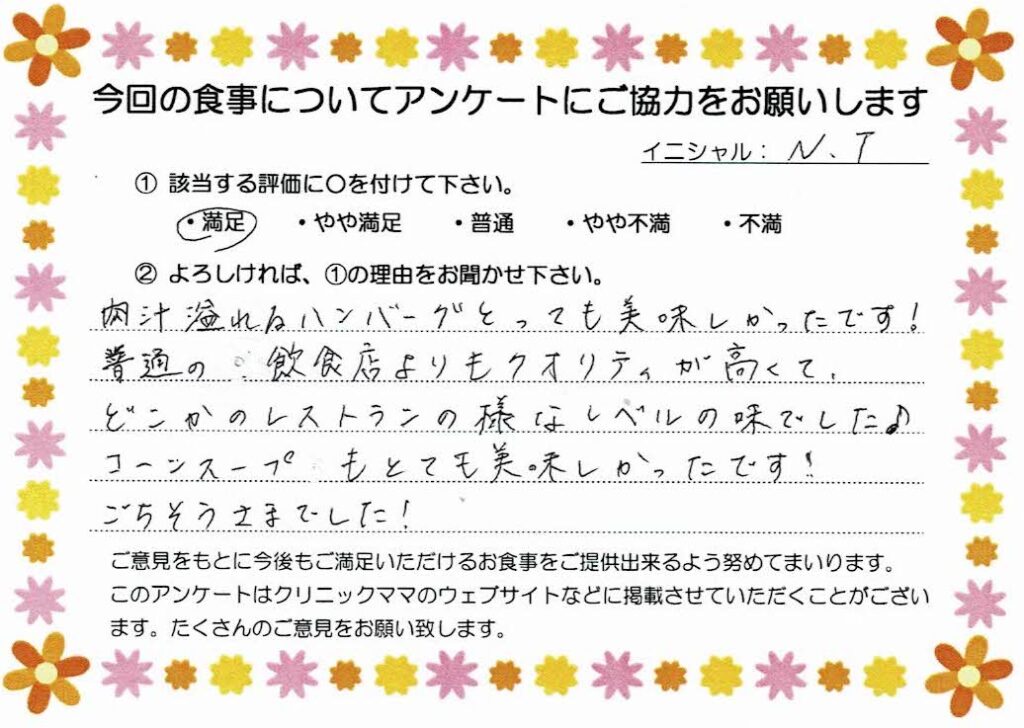 今回の食事についてアンケートにご協力をお願いします
イニシャル： N.T
① 該当する評価に〇を付けて下さい。
・満足 ・やや満足 ・普通 ・やや不満 ・不満
② よろしければ、①の理由をお聞かせ下さい。
肉汁溢れるハンバーグとっても美味しかったです！
普通の飲食店よりもクオリティが高くて、
どこかのレストランの様なレベルの味でした♪
コーンスープもとても美味しかったです！
ごちそうさまでした！
ご意見をもとに今後もご満足いただけるお食事をご提供出来るよう努めてまいります。
このアンケートはクリニックママのウェブサイトなどに掲載させていただくことがござい
ます。たくさんのご意見をお願い致します。